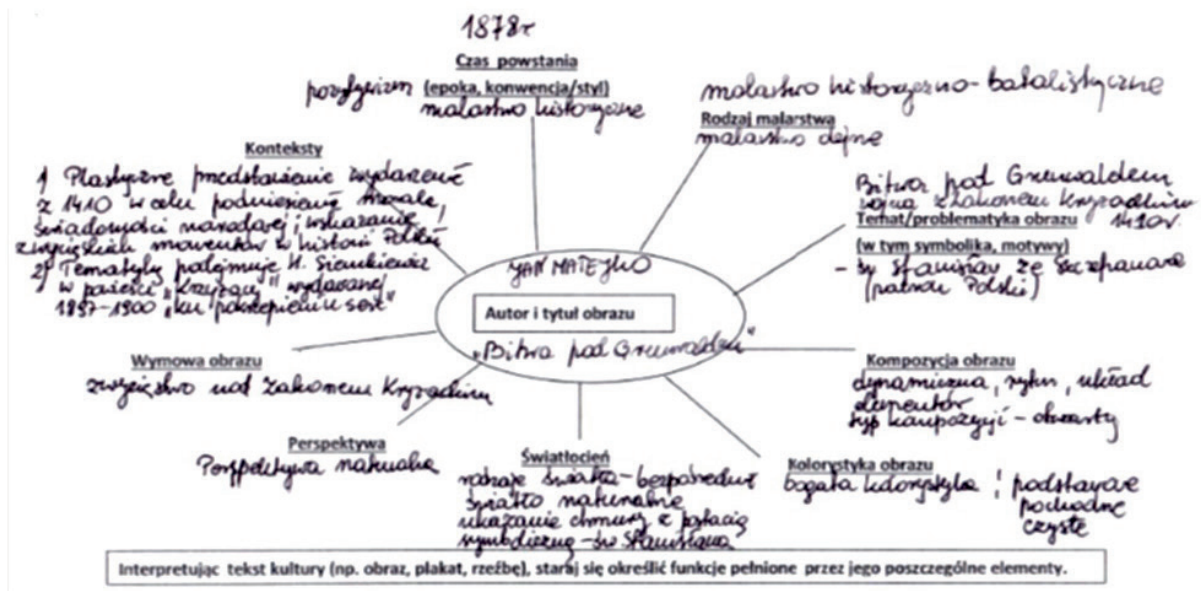 1878r
Czas powstania
pozytywizm (epoka, konwencja/styl)
malarstwo historyczne
malarstwo historyczno-batalistyczne
Rodzaj malarstwa
malarstwo
Konteksty
1 Plastyczne przedstawienie wydarzeń
z 1410 w celu podniesienia morale,
świadomości narodowej i wskazanie
zwycięskich momentów w historii Polski
2) Tematykę podejmuje H. Sienkiewicz
w powieści "Krzyżacy" wydawanej
1897-1900 "ku pokrzepieniu serc"
Bitwa pod Grunwaldem
wojna z zakonem Krzyżackim
Temat/problematyka obrazu 1410r.
(w tym symbolika, motywy)
- św Stanisław ze Szczepanowa
(patron Polski)
JAN MATEJKO
Autor i tytuł obrazu
"Bitwa pod Grunwaldem"
Wymowa obrazu
zwycięstwo nad Zakonem Krzyżackim
Kompozycja obrazu
dynamiczna, rytm, układ
elementów
typ kompozycji - otwarty
Perspektywa
Perspektywa naturalna
Światłocień
rodzaje światła - bezpośrednie
światło naturalne
ukazanie chmury z postacią
symboliczną - św Stanisława
Kolorystyka obrazu
bogata kolorystyka; podstawowe
pochodne
czyste
Interpretując tekst kultury (np. obraz, plakat, rzeźbę), staraj się określić funkcje pełnione przez jego poszczególne elementy.